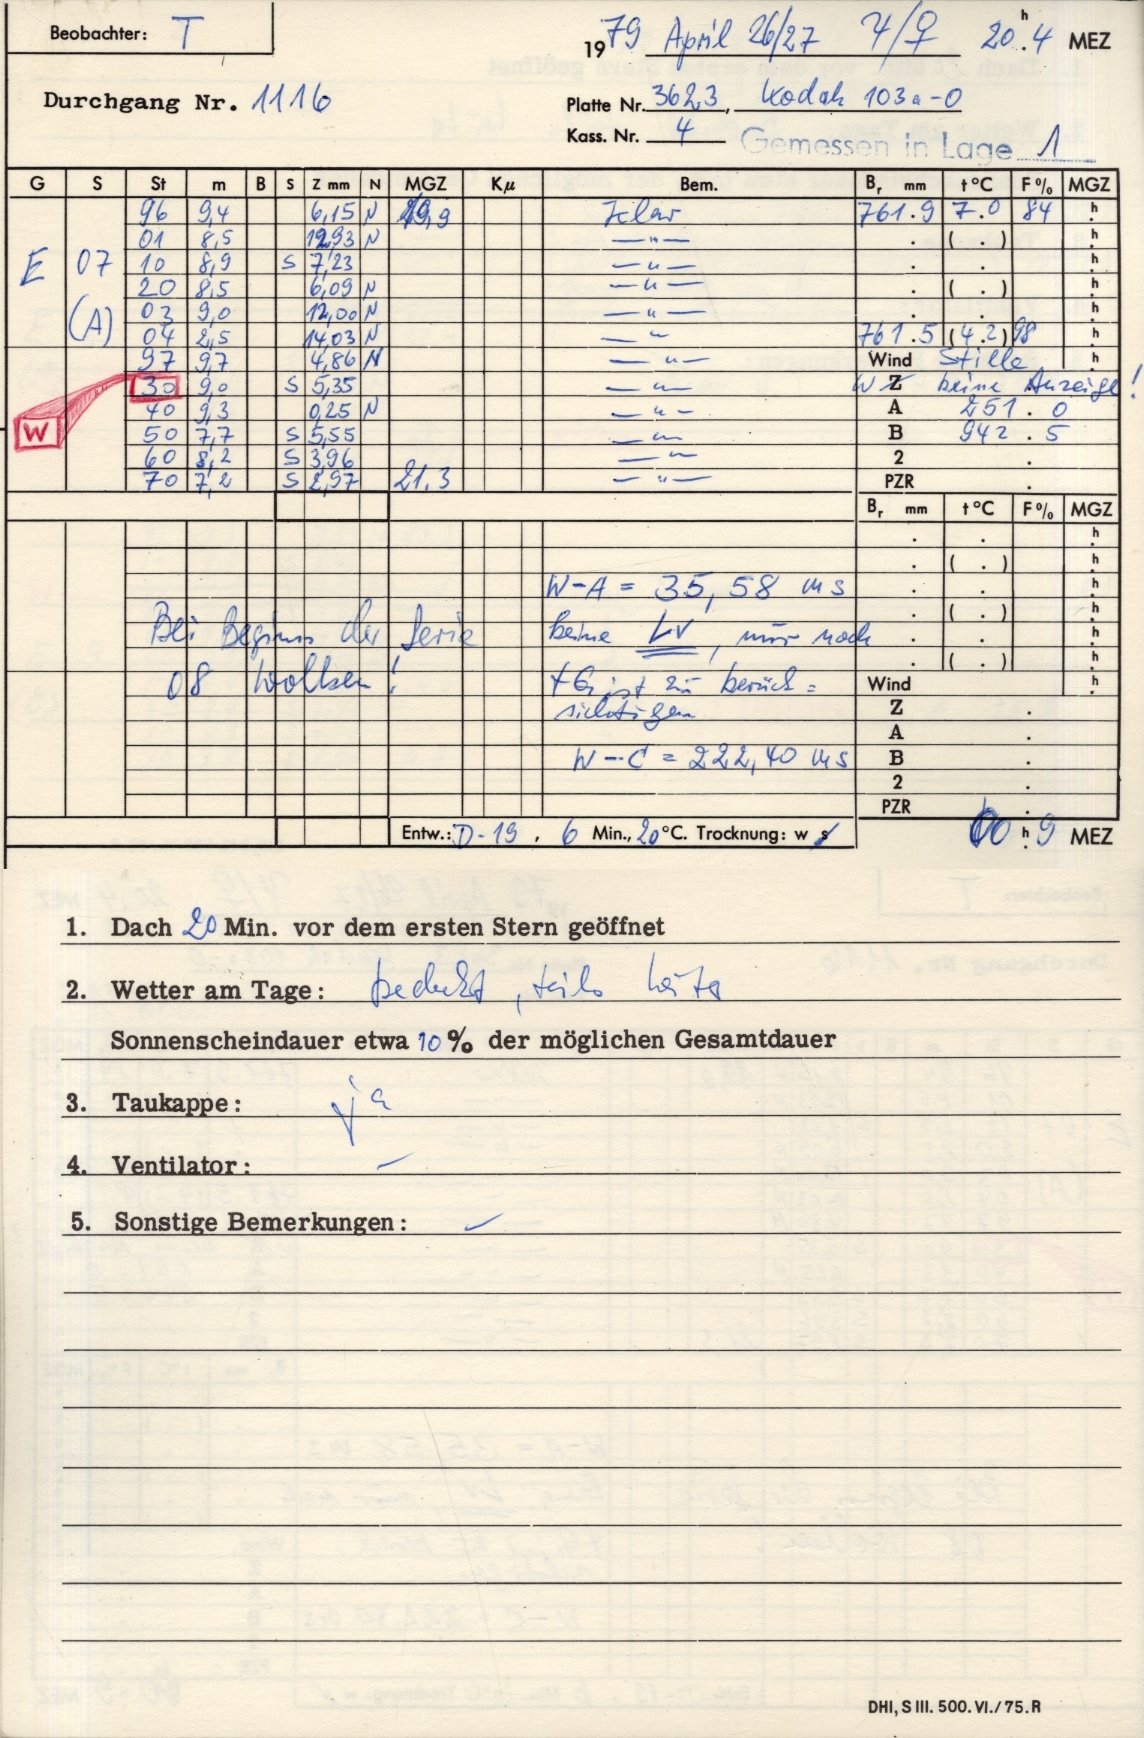 Beobachter: T
1979 April 26/27 ♃/♀ 20h.4 MEZ
Durchgang Nr. 1116
Platte Nr. 3623, Kodak 103a-O
Kass. Nr. 4 Gemessen in Lage 1
G S St m B S Z mm N MGZ Kμ Bem. Br mm t°C F% MGZ
96 9,4 6,15 N 19,9 klar 761.9 7.0 84 h
01 8,5 12,93 N —"— . ( . ) h
E 07 10 8,9 S 7,23 —"— . . h
20 8,5 6,09 N —"— . ( . ) h
(A) 03 9,0 12,00 N —"— . . h
04 2,5 14,03 N —"— 761.5 (4.2) 98 h
97 9,7 4,86 N —"— Wind Stille h
30 9,0 S 5,35 —"— WZ keine Anzeige!
40 9,3 0,25 N —"— A 251.0
W 50 7,7 S 5,55 —"— B 942.5
60 8,2 S 3,96 —"— 2 .
70 7,2 S 2,97 21.3 —"— PZR .
Br mm t°C F% MGZ
. . h
. ( . ) h
W-A = 35,58 ms . . h
Bei Beginn der Serie keine LV, nur noch . ( . ) h
. . h
. ( . ) h
08 Wolken! tG ist zu berück= Wind h
sichtigen Z .
A .
W-C = 222,40 ms B .
2 .
PZR .
Entw.: D-19. 6 Min., 20°C. Trocknung: w s 00h.9 MEZ
1. Dach 20 Min. vor dem ersten Stern geöffnet
2. Wetter am Tage: bedeckt, teils heiter
Sonnenscheindauer etwa 10% der möglichen Gesamtdauer
3. Taukappe: ja
4. Ventilator: –
5. Sonstige Bemerkungen: –
DHI, S III. 500. VI./75. R